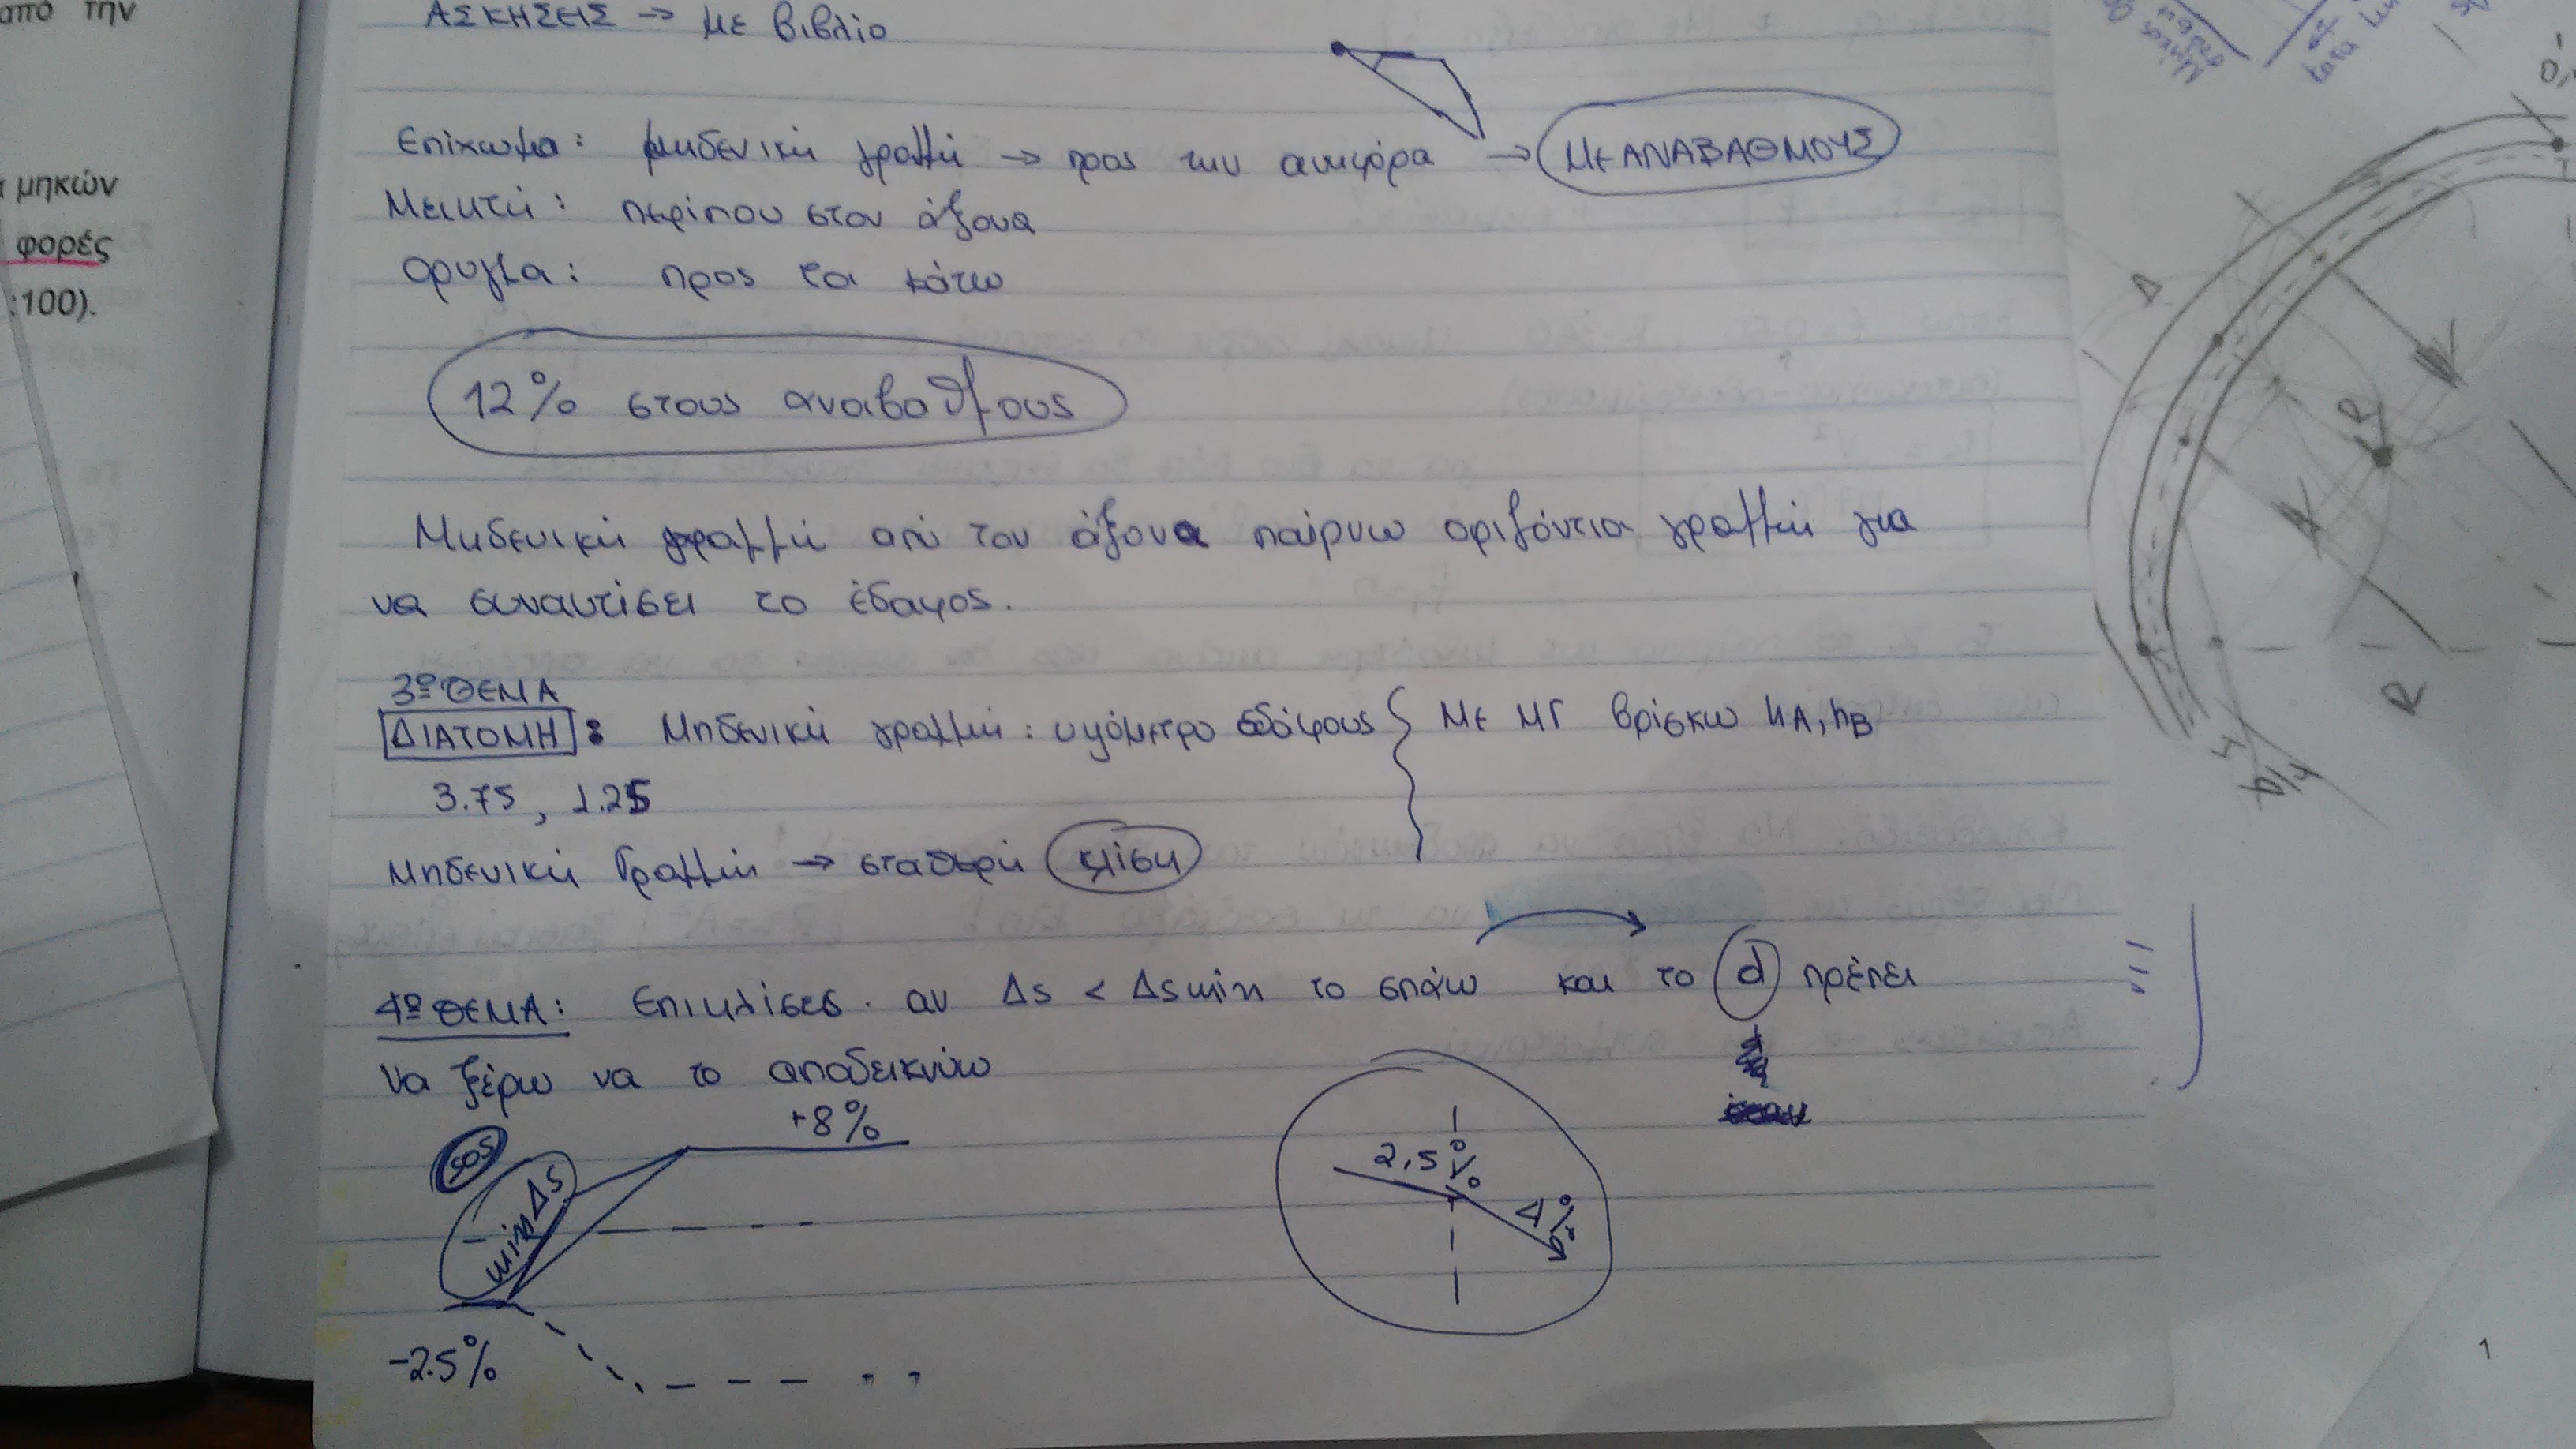 από την
μηκών
φορές
:100).
ΑΣΚΗΣΕΙΣ → με βιβλίο
Επίχωμα: μηδενική γραμμή → προς την ανηφόρα → ΜΕ ΑΝΑΒΑΘΜΟΥΣ
Μεικτή: περίπου στον άξονα
Όρυγμα: προς τα κάτω
12% στους αναβαθμους
Μηδενική γραμμή από τον άξονα παίρνω οριζόντια γραμμή για
να συναντίσει το έδαφος.
3º ΘΕΜΑ
ΔΙΑΤΟΜΗ: Μηδενική γραμμή: υψόμετρο εδάφους } Με ΜΓ βρίσκω hA, hB
3.75, 1.25
Μηδενική Γραμμή → σταθερή κλίση
4º ΘΕΜΑ: Επικλίσεις. αν Δs < Δs min το σπάω και το d πρέπει
να ξέρω να το αποδεικνύω
+8%
SOS
min Δs
2,5%
4%
-2.5%
Δ
R
R
1